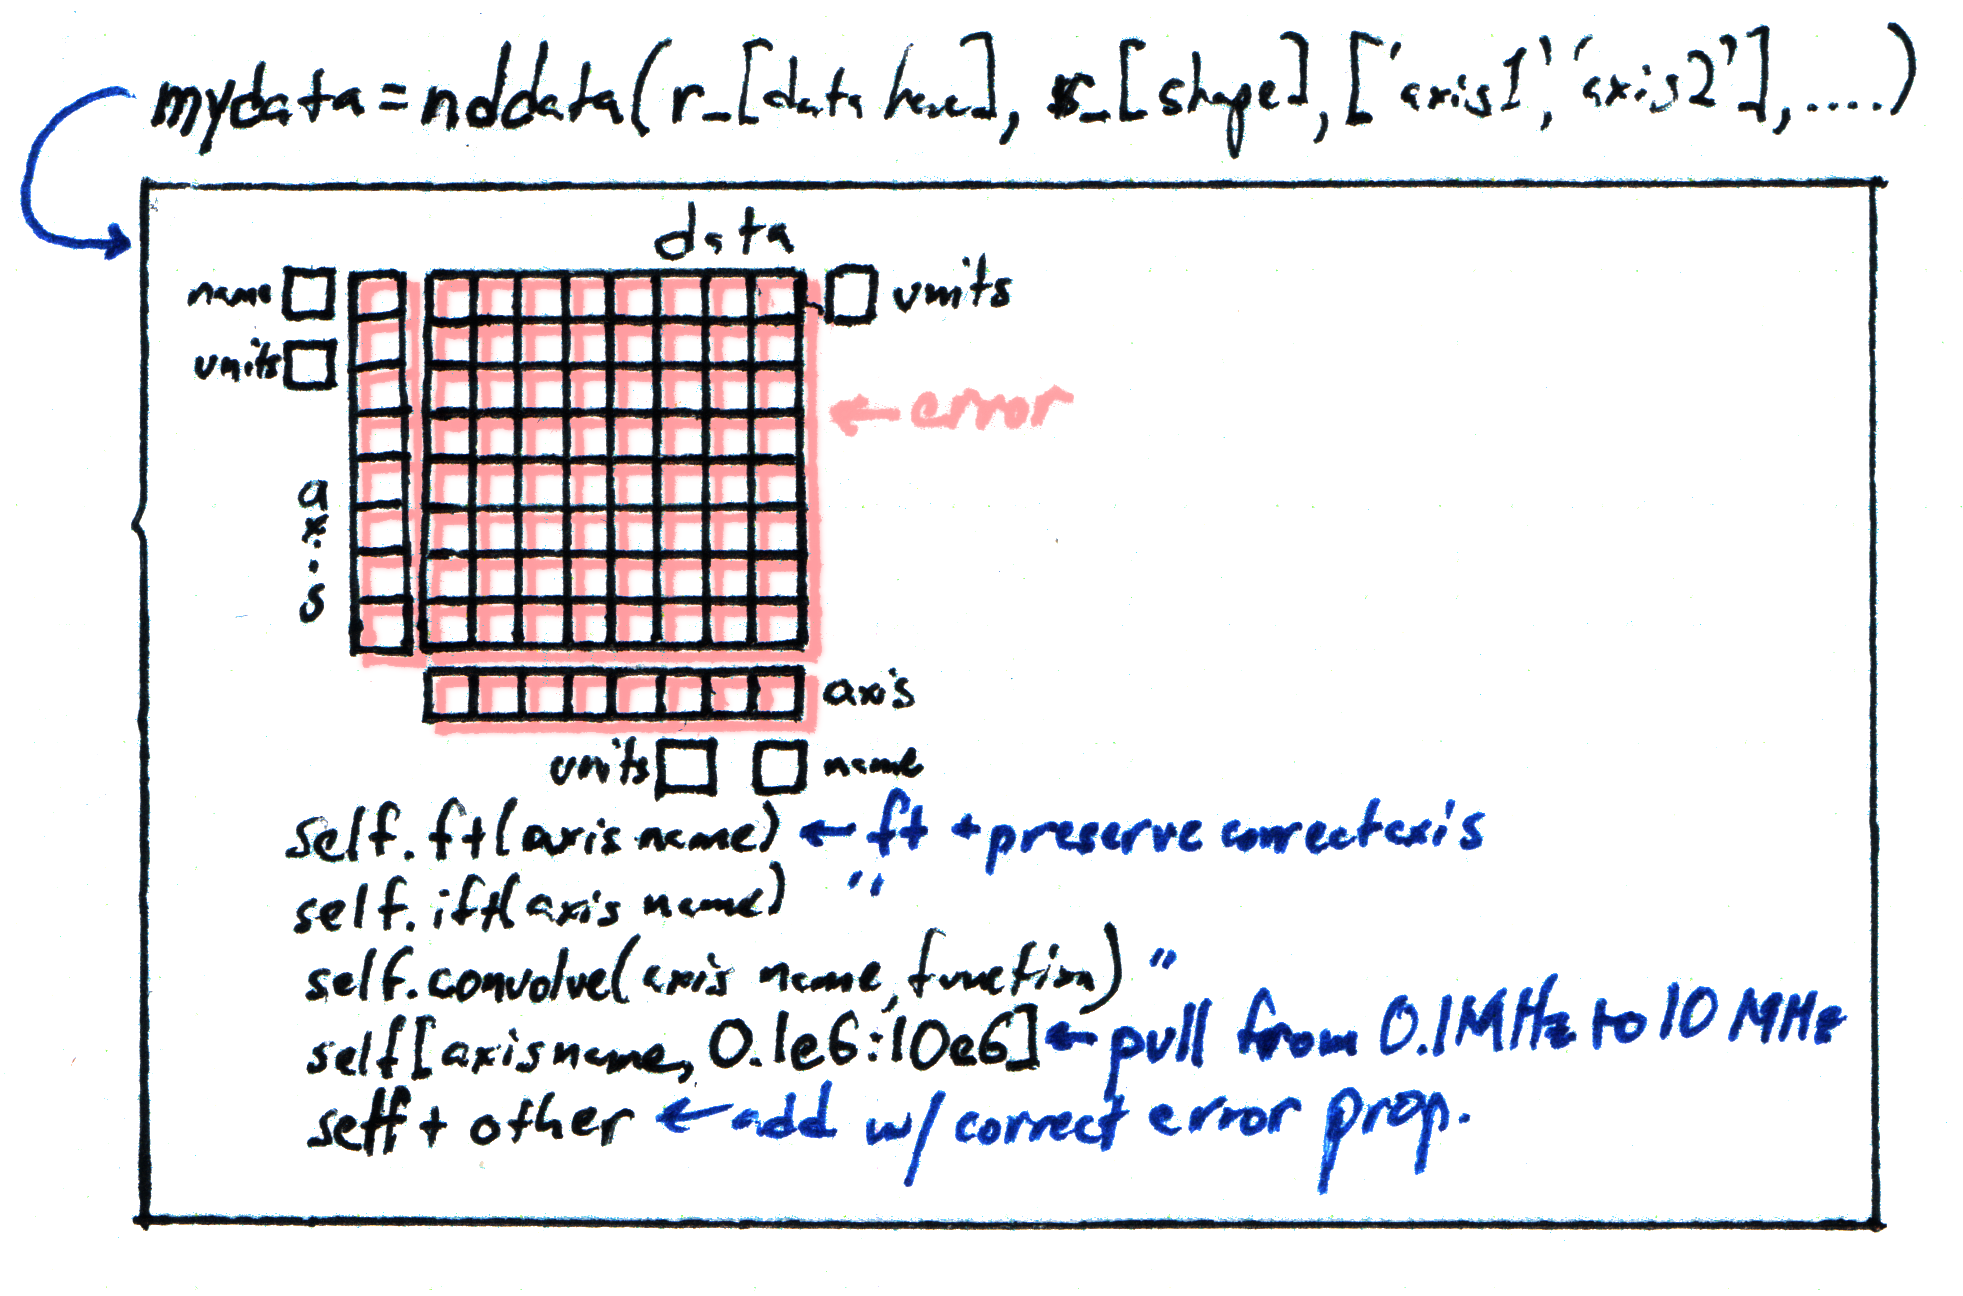 mydata=nddata(r_[data here], r_[shape],['axis1','axis2'],....)
data
name
units
units
← error
axis
axis
units
name
self.ft(axis name) ← ft + preserve correct axis
self.ift(axis name) "
self.convolve(axis name, function) "
self[axisname, 0.1e6:10e6] ← pull from 0.1MHz to 10 MHz
self + other ← add w/ correct error prop.